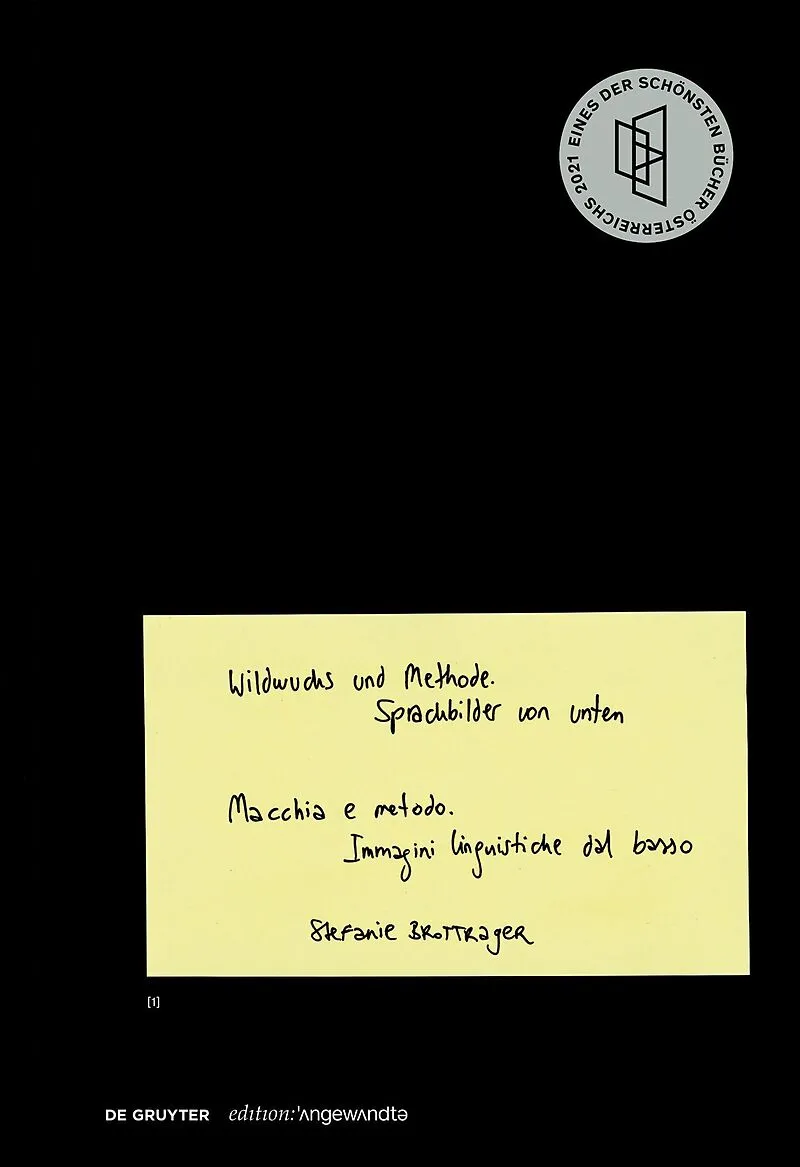 EINES DER SCHÖNSTEN BÜCHER ÖSTERREICHS 2021
Wildwuchs und Methode.
Sprachbilder von unten
Macchia e metodo.
Immagini linguistiche dal basso
Stefanie BRoTTRageR
[1]
DE GRUYTER edition:'ʌngewʌndtə